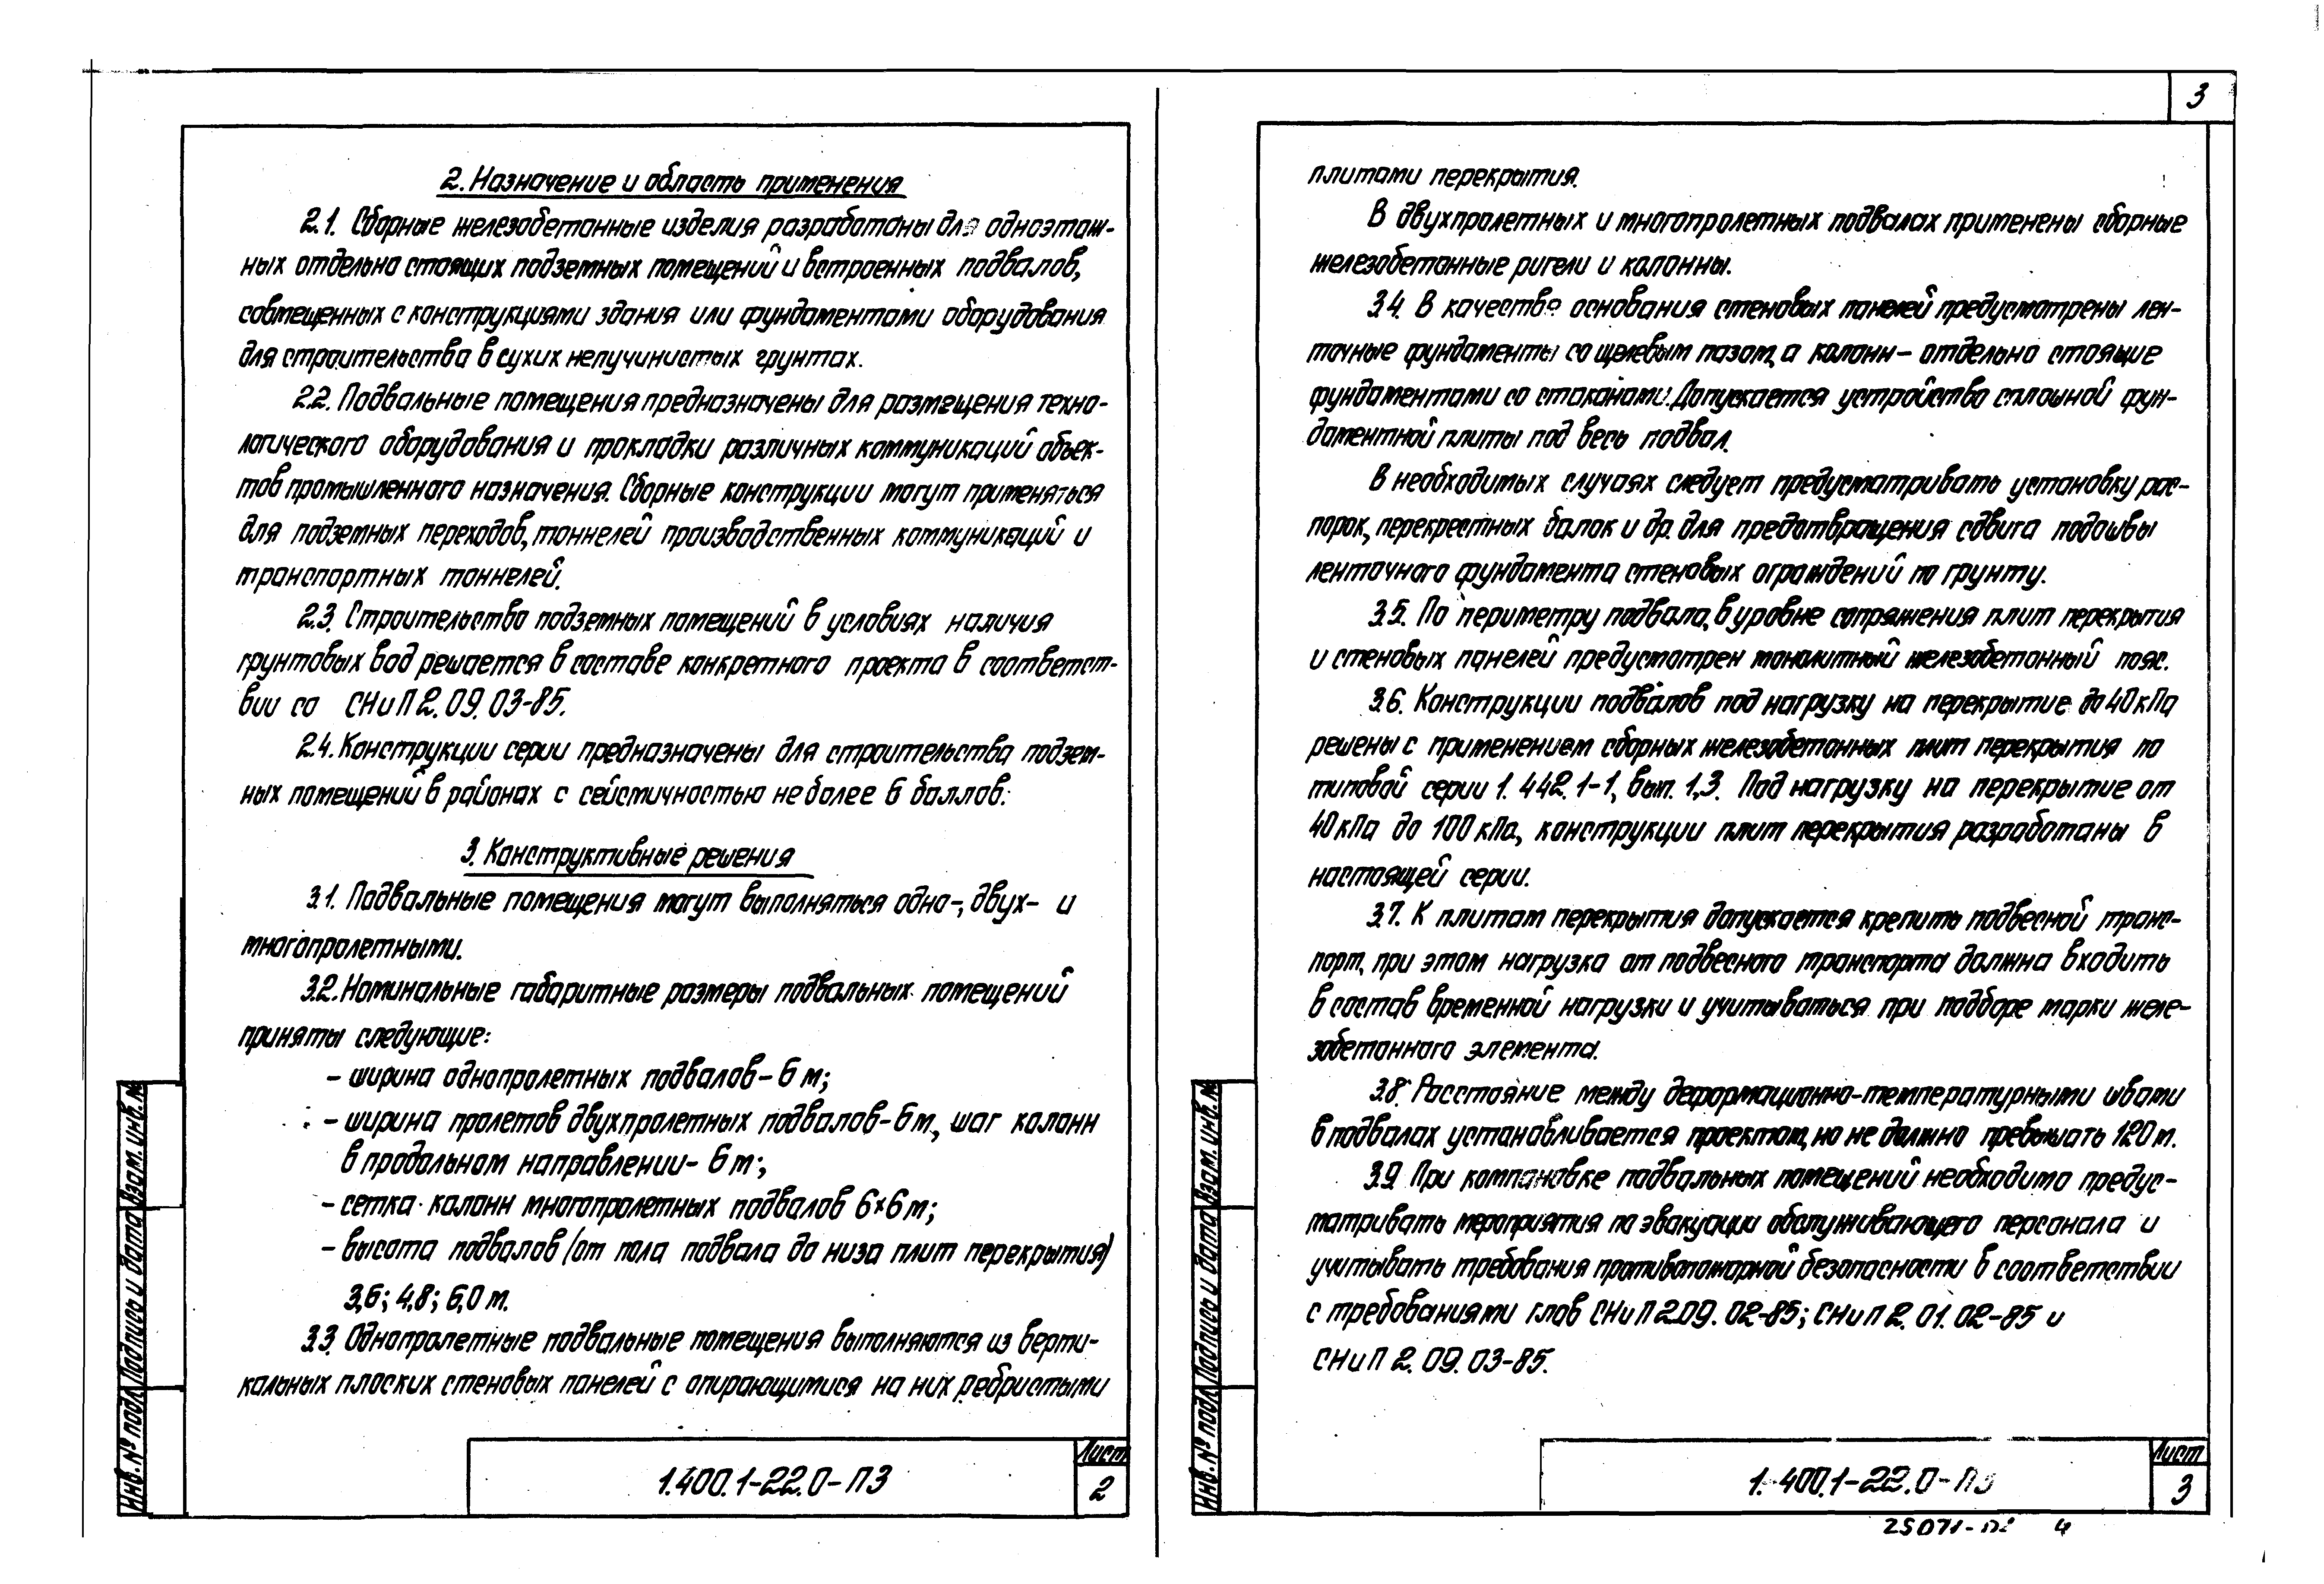 3
2. Назначение и область применения
2.1. Сборные железобетонные изделия разработаны для одноэтаж-
ных отдельно стоящих подземных помещений и встроенных подвалов,
совмещенных с конструкциями здания или фундаментами оборудования
для строительства в сухих непучинистых грунтах.
2.2. Подвальные помещения предназначены для размещения техно-
логического оборудования и прокладки различных коммуникаций объек-
тов промышленного назначения. Сборные конструкции могут применяться
для подземных переходов, тоннелей производственных коммуникаций и
транспортных тоннелей.
2.3. Строительство подземных помещений в условиях наличия
грунтовых вод решается в составе конкретного проекта в соответст-
вии со СНиП 2.09.03-85.
2.4. Конструкции серии предназначены для строительства подзем-
ных помещений в районах с сейсмичностью не более 6 баллов.
3. Конструктивные решения
3.1. Подвальные помещения могут выполняться одно-, двух- и
многопролетными.
3.2. Номинальные габаритные размеры подвальных помещений
приняты следующие:
- ширина однопролетных подвалов - 6 м;
- ширина пролетов двухпролетных подвалов - 6 м, шаг колонн
в продольном направлении - 6 м;
- сетка колонн многопролетных подвалов 6×6 м;
- высота подвалов (от пола подвала до низа плит перекрытия)
3,6; 4,8; 6,0 м.
3.3. Однопролетные подвальные помещения выполняются из верти-
кальных плоских стеновых панелей с опирающимися на них ребристыми
Инв. № подл. Подпись и дата Взам. инв. №
1.400.1-22.0-ПЗ
Лист
2
плитами перекрытия.
В двухпролетных и многопролетных подвалах применены сборные
железобетонные ригели и колонны.
3.4. В качестве основания стеновых панелей предусмотрены лен-
точные фундаменты со щелевым пазом, а колонн - отдельно стоящие
фундаментами со стаканами. Допускается устройство сплошной фун-
даментной плиты под весь подвал.
В необходимых случаях следует предусматривать установку рас-
порок, перекрестных балок и др. для предотвращения сдвига подошвы
ленточного фундамента стеновых ограждений по грунту.
3.5. По периметру подвала, в уровне сопряжения плит перекрытия
и стеновых панелей предусмотрен монолитный железобетонный пояс.
3.6. Конструкции подвалов под нагрузку на перекрытие до 40 кПа
решены с применением сборных железобетонных плит перекрытия по
типовой серии 1.442.1-1, вып. 1,3. Под нагрузку на перекрытие от
40 кПа до 100 кПа, конструкции плит перекрытия разработаны в
настоящей серии.
3.7. К плитам перекрытия допускается крепить подвесной транс-
порт, при этом нагрузка от подвесного транспорта должна входить
в состав временной нагрузки и учитываться при подборе марки желе-
зобетонного элемента.
3.8. Расстояние между деформационно-температурными швами
в подвалах устанавливается проектом, но не должно превышать 120 м.
3.9. При компановке подвальных помещений необходимо предус-
матривать мероприятия по эвакуации обслуживающего персонала и
учитывать требования противопожарной безопасности в соответствии
с требованиями глав СНиП 2.09.02-85; СНиП 2.01.02-85 и
СНиП 2.09.03-85.
Инв. № подл. Подпись и дата Взам. инв. №
1.400.1-22.0-ПЗ
Лист
3
25071-02 4